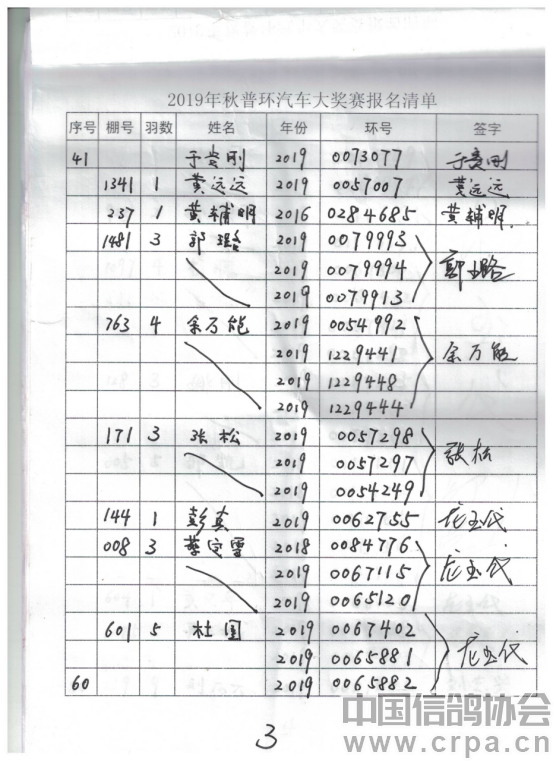 2019年秋普环汽车大奖赛报名清单
序号 棚号 羽数 姓名 年份 环号 签字
41 于贵刚 2019 0073077 于贵刚
1341 1 黄远远 2019 0057007 黄远远
237 1 黄辅明 2016 0284685 黄辅明
1481 3 郭璐 2019 0079993
2019 0079994 郭璐
2019 0079913
763 4 余万能 2019 0054992
2019 1229441 余万能
2019 1229448
2019 1229444
171 3 张松 2019 0057298
2019 0057297 张松
2019 0054249
144 1 彭真 2019 0062755
008 3 蔡定雪 2018 0084776
2019 0067115
2019 0065120
601 5 杜国 2019 0067402
2019 0065881
60 2019 0065882
3
中国信鸽协会
www.crpa.cn